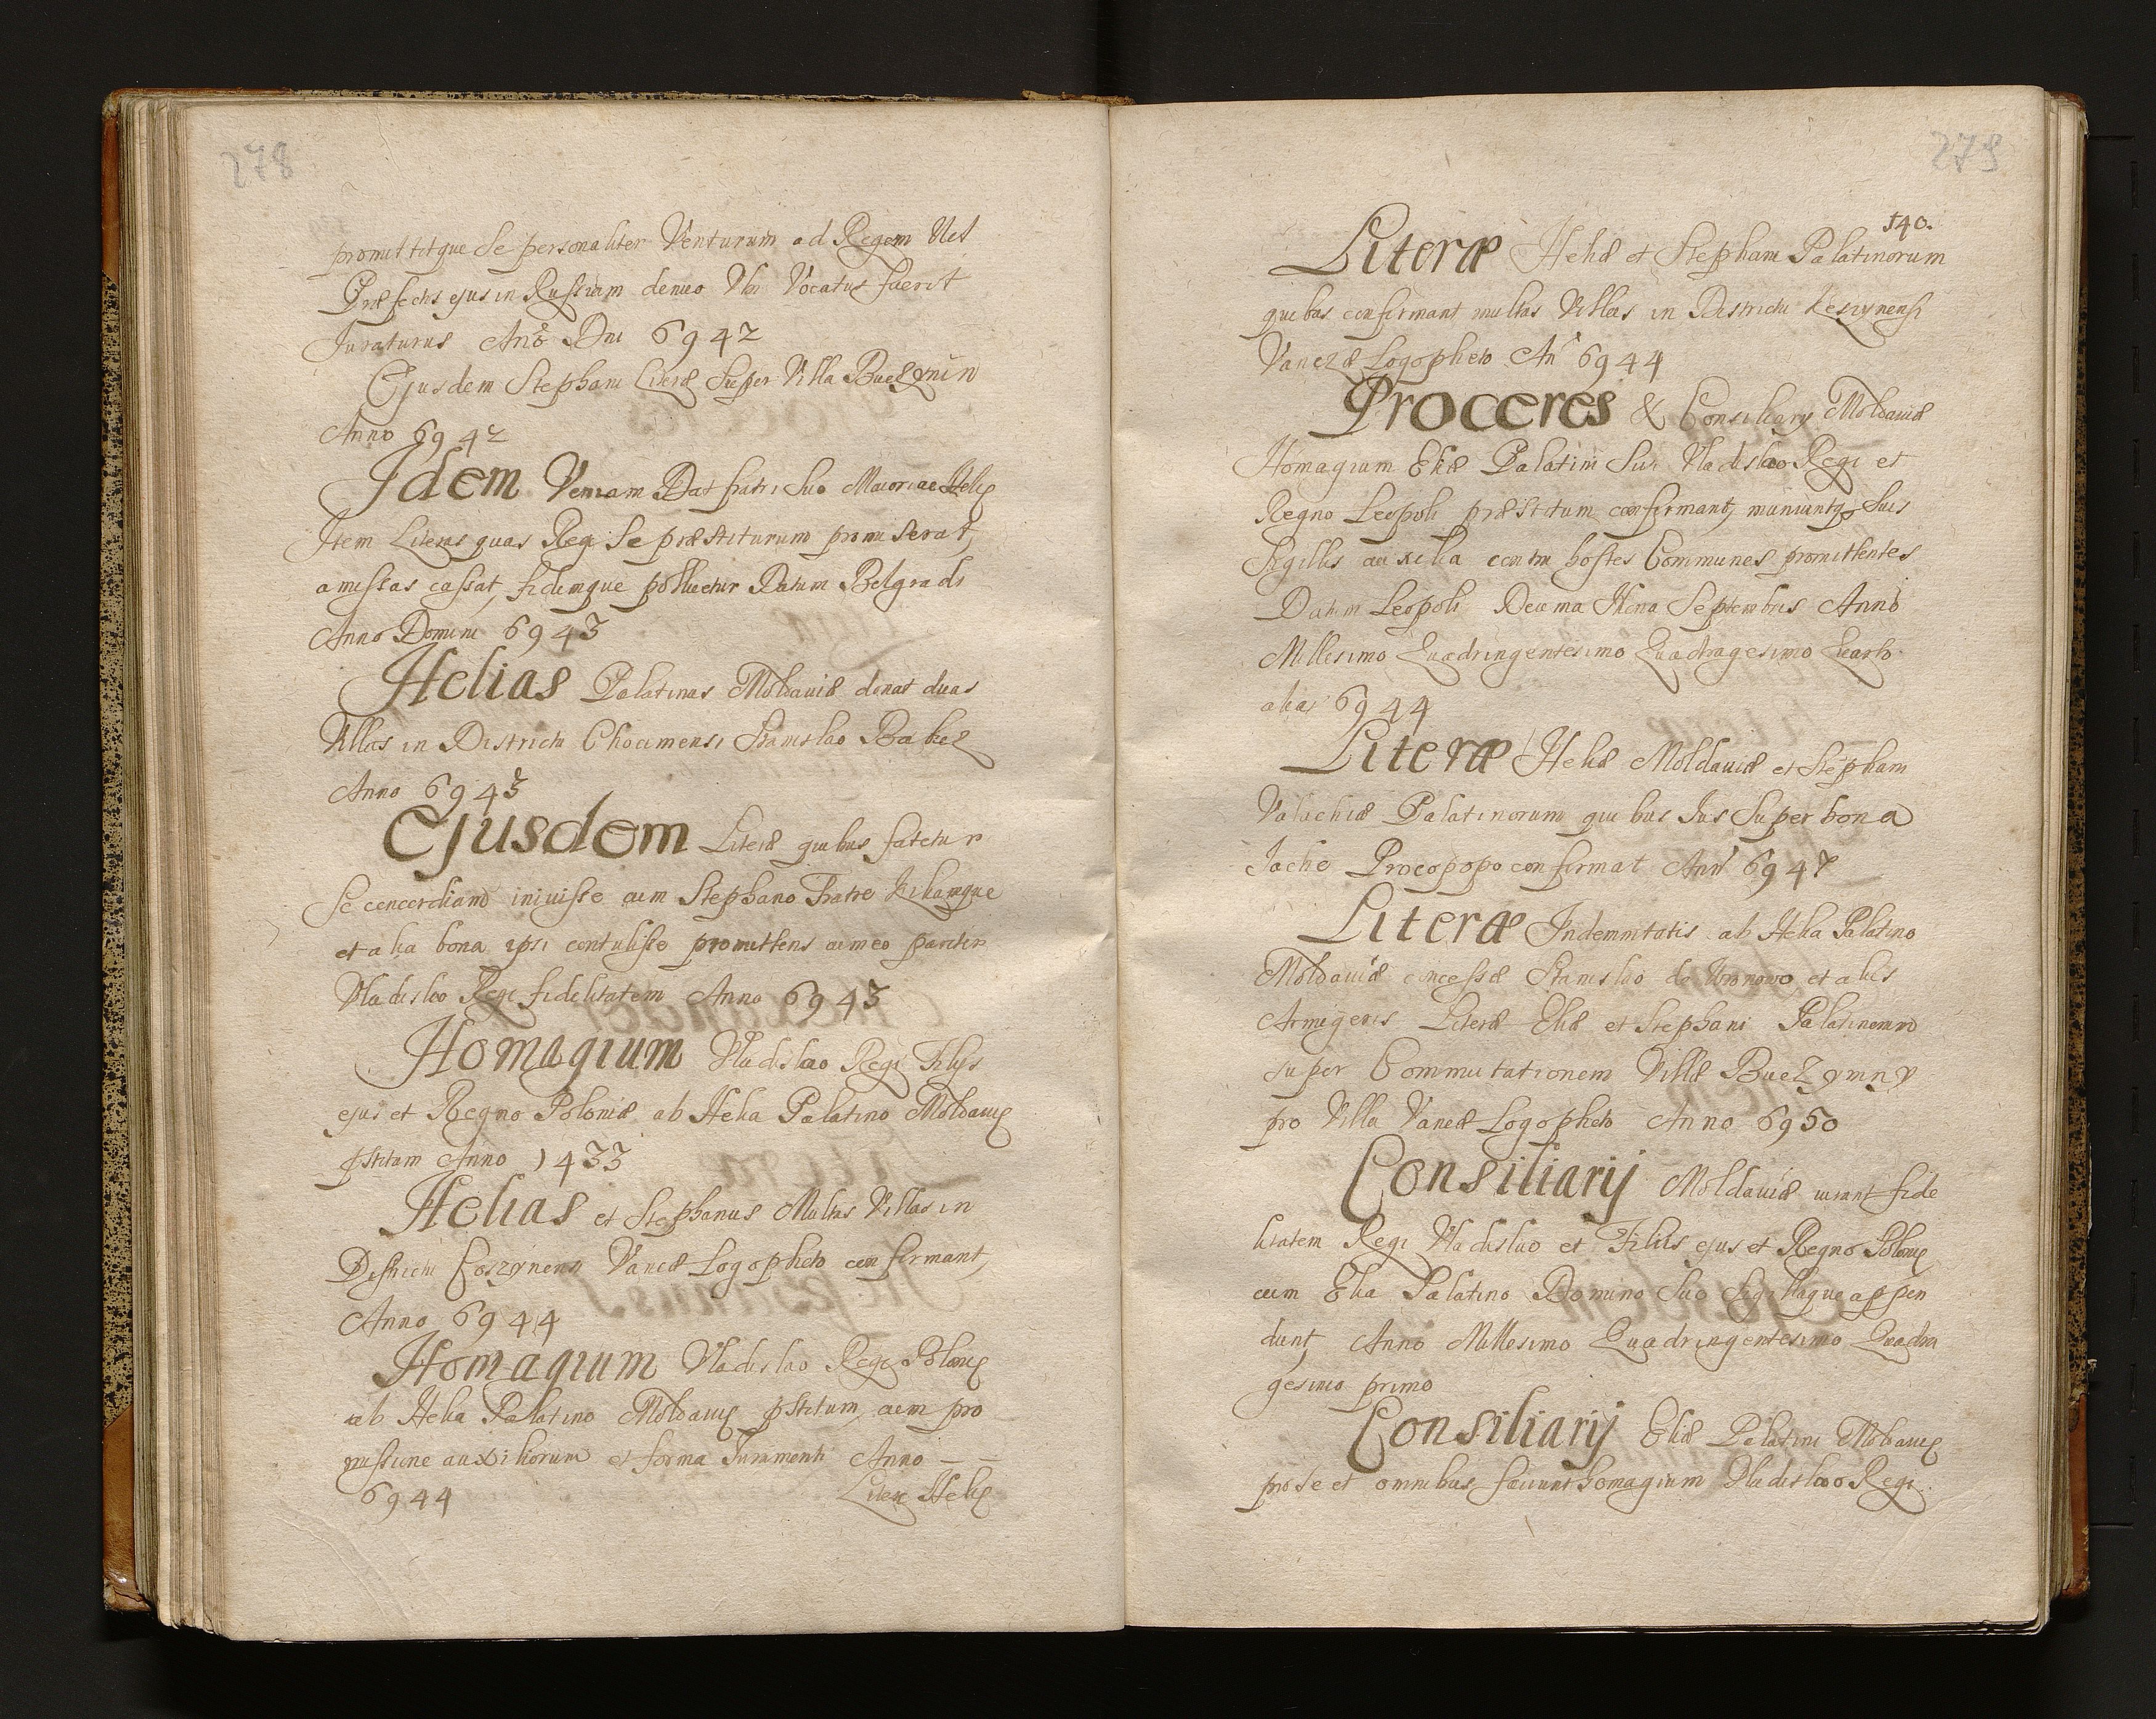 278
promittitque se personaliter Venturum ad Regem Vel
Præfectis ejus in Russiam denuo Vbi Vocatus fuerit
Juraturus Anō Dni 6942
Ejusdem Stephani Literæ Super Villa Buczynin
Anno 6942
Idem Veniam Dat fratri Suo Maiori Helię
Item Literas quas Regi Se præstiturum promiserat,
amissas cassat, fidemque pollicetur Datum Belgradi
Anno Domini 6943
Helias Palatinus Moldauiæ donat duas
Villas in Districtu Chocimensi Stanislao
Anno 6943
Ejusdem Literæ quibus fatetur
Se concordiam inivisse cum Stephano Fratre Kiliamque
et alia bona ipsi contulisse promittens cum eo pariter
Vladislao Regi fidelitatem Anno 6943
Homagium Vladislao Regi Filijs
ejus et Regno Poloniæ ab Helia Palatino Moldauię
pstitum Anno 1433
Helias et Stephanus Multas Villas in
Districtu Vancæ Logopheto confirmant,
Anno 6944
Homagium Vladislao Regi Polonię
ab Helia Palatino Moldauię pstitum, cum pro
missione auxiliorum et forma Juramenti Anno — —
6944
Literæ Helię
279
140.
Literæ Heliæ et Stephani Palatinorum
quibus confirmant multas Villas in Districtu
Vanczæ Logopheto An 6944
Proceres & Consiliarij Moldauiæ
Homagium Eliæ Palatini Sui Vladislao Regi et
Regno Leopoli præstitum confirmant, muniuntq Suis
Sigillis auxilia contra hostes Communes promittentes
Datum Leopoli Decima Nona Septembris Anno
Millesimo Quadringentesimo Quadragesimo Quarto
alias 6944
Literæ Heliæ Moldauiæ et Stephani
Valachiæ Palatinorum quibus Jus Super bona
Jachē Procopopo confirmat Anno 6947
Literæ Indemnitatis ab Helia Palatino
Moldauiæ concessæ Stanislao de et alijs
Armigeris Literæ Eliæ et Stephani Palatinorum
super Commutationem Villæ Buczymny
pro Villa Vancæ Logopheto Anno 6950
Consiliarij Moldauiæ iurant fide
litatem Regi Vladislao et Filiis ejus et Regno Polonię
cum Elia Palatino Domino Suo Sigillaque appen
dunt, Anno Millesimo Quadringentesimo Quadra
gesimo primo
Consiliarij Eliæ Palatini Moldauię
pro se et omnibus faciunt homagium Vladislao Regi